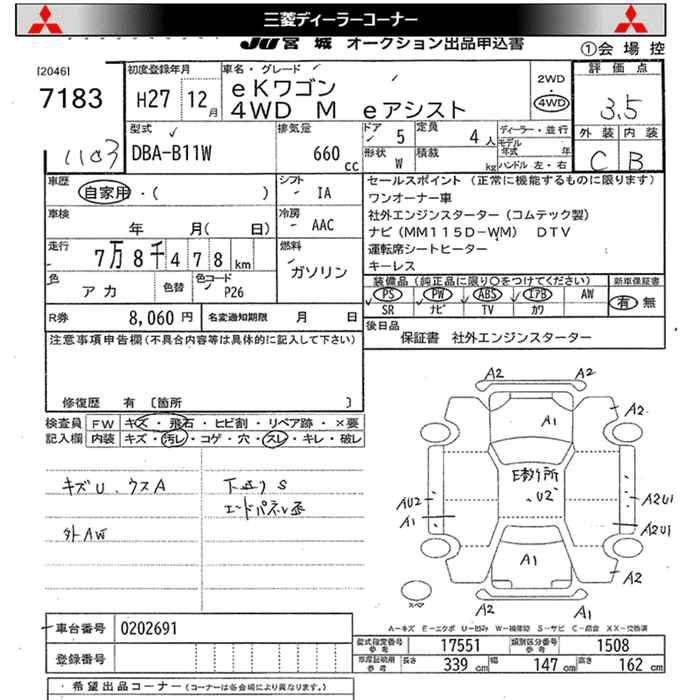 三菱ディーラーコーナー
JU宮城 オークション出品申込書 ①会場控
[2046] 初度登録年月 車名・グレード 2WD 評価点
7183 H27 12月 eKワゴン 4WD
4WD M eアシスト 3.5
型式 排気量 ドア 5 定員 4人 ディーラー・並行 外装 内装
1103 DBA-B11W 660cc 形状 W 積載 kg モデル年式 年 C B
ハンドル 左・右
車歴 自家用・( ) シフト IA セールスポイント (正常に機能するものに限ります)
ワンオーナー車
車検 年 月( 日) 冷房 AAC 社外エンジンスターター (コムテック製)
ナビ(MM115D-WM) DTV
走行 7万8千478km 燃料 ガソリン 運転席シートヒーター
キーレス
色 アカ 色替 色コード P26 装備品(純正品に限り○をつけてください) 新車保証書
PS PW ABS エアB AW 有 無
SR ナビ TV カワ
R券 8,060円 名変通知期限 月 日 後日品
保証書 社外エンジンスターター
注意事項申告欄(不具合内容等は具体的に記入して下さい)
修復歴 有 [箇所 ]
検査員 FW キズ・飛石・ヒビ割・リペア跡・×要
記入欄 内装 キズ・汚レ・コゲ・穴・スレ・キレ・破レ
キズU、ウスA 下廻りS
エンドパネル歪
外AW
A2 A2
A1 A2
E数ヶ所
U2
AU2 A2U1
A1 A2U1
A1 A2
A2 A1
スペア
A-キズ E-エクボ U-凹み W-補修跡 S-サビ C-腐食 XX-交換済
車台番号 0202691
型式指定番号 参考 17551 類別区分番号 参考 1508
登録番号
車庫証明用 参考 長さ 339cm 幅 147cm 高さ 162cm
・希望出品コーナー(コーナーは各会場により異なります。)